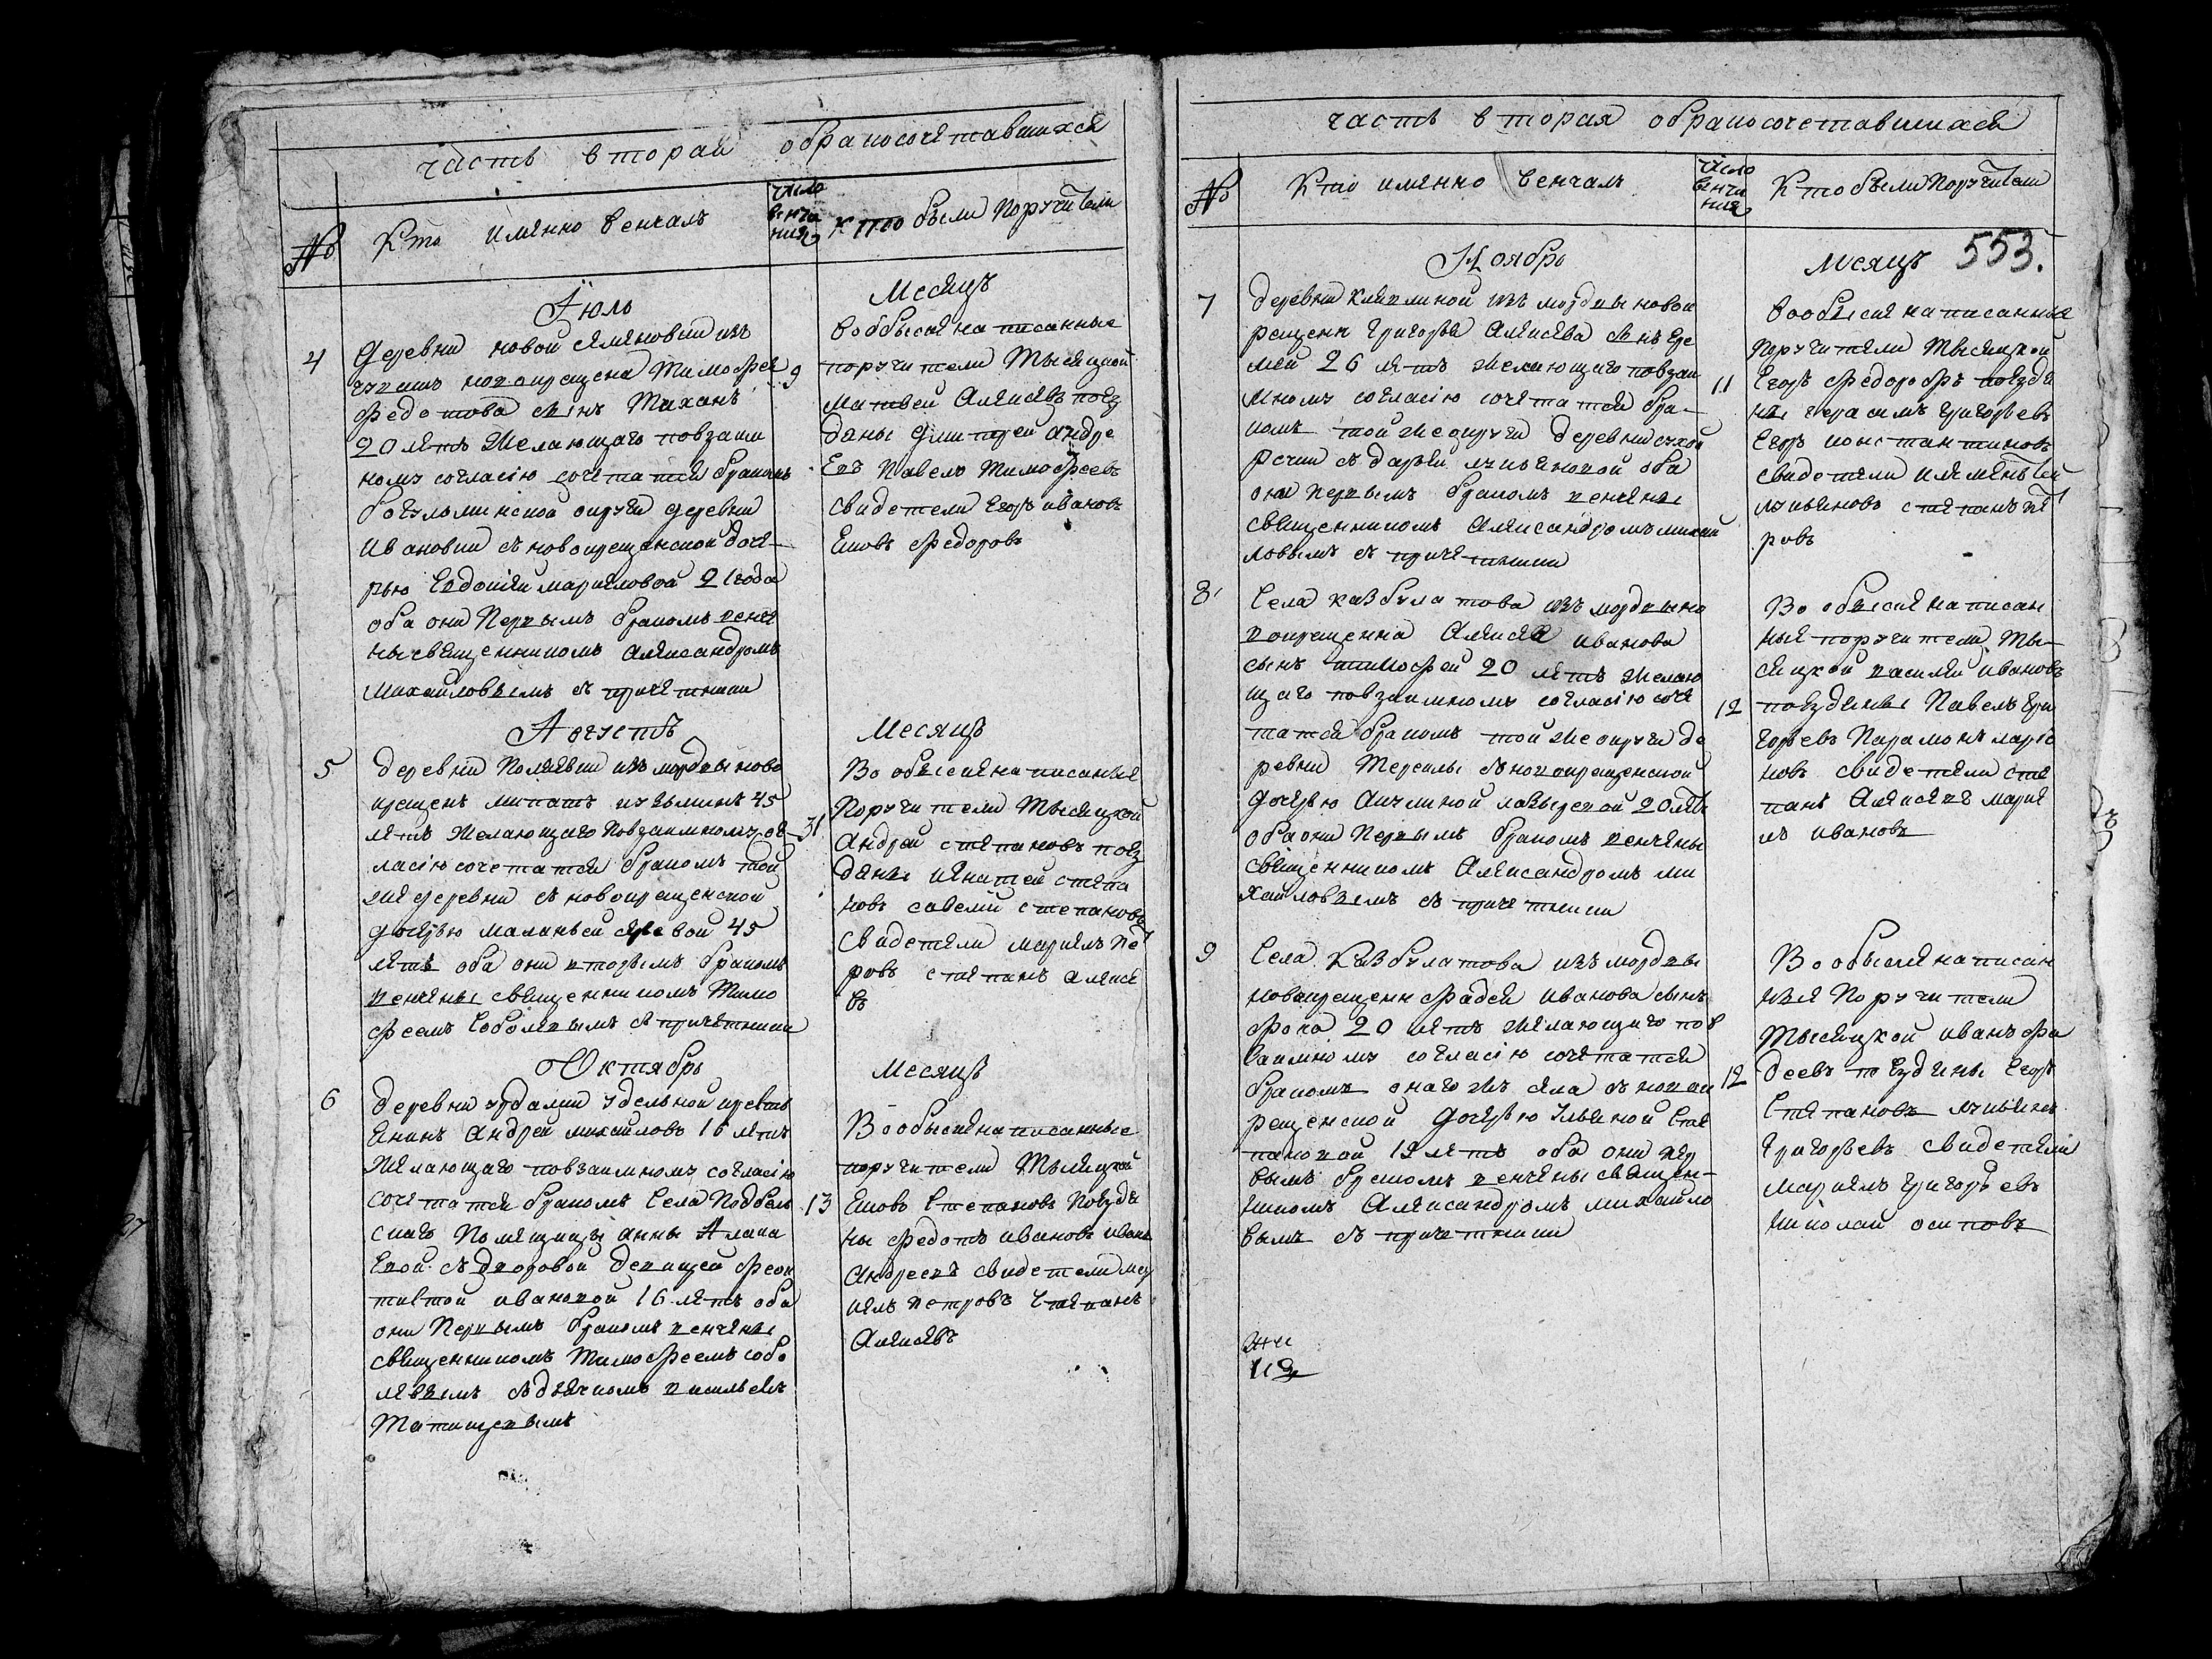 часть вторая обракосочетавшихся
№
Кто имянно венчалъ
число
венча
ния
Кто были Поручители
Іюль
Месяцъ
4
Деревни новой сямяновки изъ
чувашъ новокрещена Тимофея
Федотова сынъ
20 лятъ Желающаго повзаим
ному согласію сочятатся бракомъ
богульминской округи деревни
Ивановки съ новокрещенской доче-
рью Евдокіяи мариаловой 21 года
оба они Первымъ бракомъ венчя
ны священникомъ Аляксандромъ
Михайловымъ съ причятники
9
вообыскя написанные
поручители Тысяцкой
Матвей Аляксяевъ поез
даны Дмитрей андре
Евъ Павелъ Тимофеевъ
Свидетели Егоръ ивановъ
Яковъ Федоровъ
Августъ
Месяцъ
5
Деревни Поляевки изъ мордвы ново
крещенъ 45
лятъ Желающаго Повзаимному сог
ласію сочетатся бракомъ той
жя деревни съ новокрещенской
дочярью маланьей 45
лятъ оба они вторымъ бракомъ
венчяны священникомъ Тимо
феемъ Соболявымъ съ причятники
31
Во обыскя написаныя
Поручители Тысяцкой
Андрей стяпановъ поез
даны игнатей стяпа
новъ савелий степановъ
Свидетяли мариялъ пет
ровъ стяпанъ аляксе
въ
Октябрь
Месяцъ
6
Деревни удельной кресть
Янинъ Андрей михайловъ 16 лятъ
Жялающаго повзаимному согласію
сочятатся бракомъ Села Подбель
скаго Помящицы анны
съ дворовой девицей Феок
тистой ивановой 16 лятъ оба
они Первымъ бракомъ венчяны
священникомъ Тимофеемъ собо
лявымъ съ дьячкомъ васильемъ
Татищевымъ
13
Во обыскя написанные
поручители Тысяцкой
Яковъ Степановъ Поездя
ны Федотъ ивановъ иванъ
Андреевъ свидетели мар
иялъ петровъ Стяпанъ
Аляксяевъ
часть вторая обракосочетавшихся
№
Кто имянно венчалъ
число
венча
ния
Кто были Поручители
553.
Ноябрь
Месяцъ
7
деревни Кляклиной изъ мордвы новок
рещена Григорья Аляксяева сынъ Ере
мей 26 лятъ Желающаго повзаи
мному согласію сочятатся бра-
комъ той же округи деревни сухой
речки съ дарьей лукьяновой оба
они первымъ бракомъ венчяны
священникомъ Аляксандромъ михаи
ловымъ съ причятники
11
вообыскя написанныя
Поручитяли Тысяцкой
Егоръ Федоровъ поезде
ны герасимъ григорьевъ
Егоръ константиновъ
Свидетяли
лукьяновъ стяпанъ пят
ровъ
8
Села Казбулатова изъ мордвы но
вокрещенна Аляксея иванова
сынъ тимофей 20 лятъ Желаю
щаго повзаимному согласію сочя
татся бракомъ той же округи де
ревни Терсилы съ новокрещенской
дочярью Акулиной 20 лятъ
оба они Первымъ бракомъ венчяны
священникомъ Аляксандромъ ми
хайловымъ съ причетники
12
Во обыскя написан
ныя поручители Ты-
сяцкой василяи ивановъ
поезданы Павелъ Гри
горьевъ Парамонъ марко
новъ свидетяли стя
панъ Аляксяевъ мария
лъ ивановъ
9
Села Казбулатова изъ мордвы
новокрещенн Фадея иванова сынъ
Фока 20 лятъ жялающаго пов
заимному согласію сочятатся
бракомъ онаго жъ сяла съ новок
рещенской дочярью Ульяной Стя
пановой 19 лятъ оба они пяр
вымъ бракомъ венчяны священ-
никомъ Аляксандромъ михайло
вымъ съ причетники
12
Во обыскя написан
ныя Поручители
Тысяцкой иванъ Фа
деевъ поезданы Егоръ
Стяпановъ лукьянъ
Григорьевъ Свидетяли
мариялъ григорьевъ
николай осиповъ